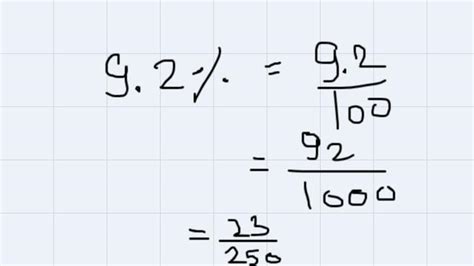 9.2% = 9.2/100
= 92/1000
= 23/250